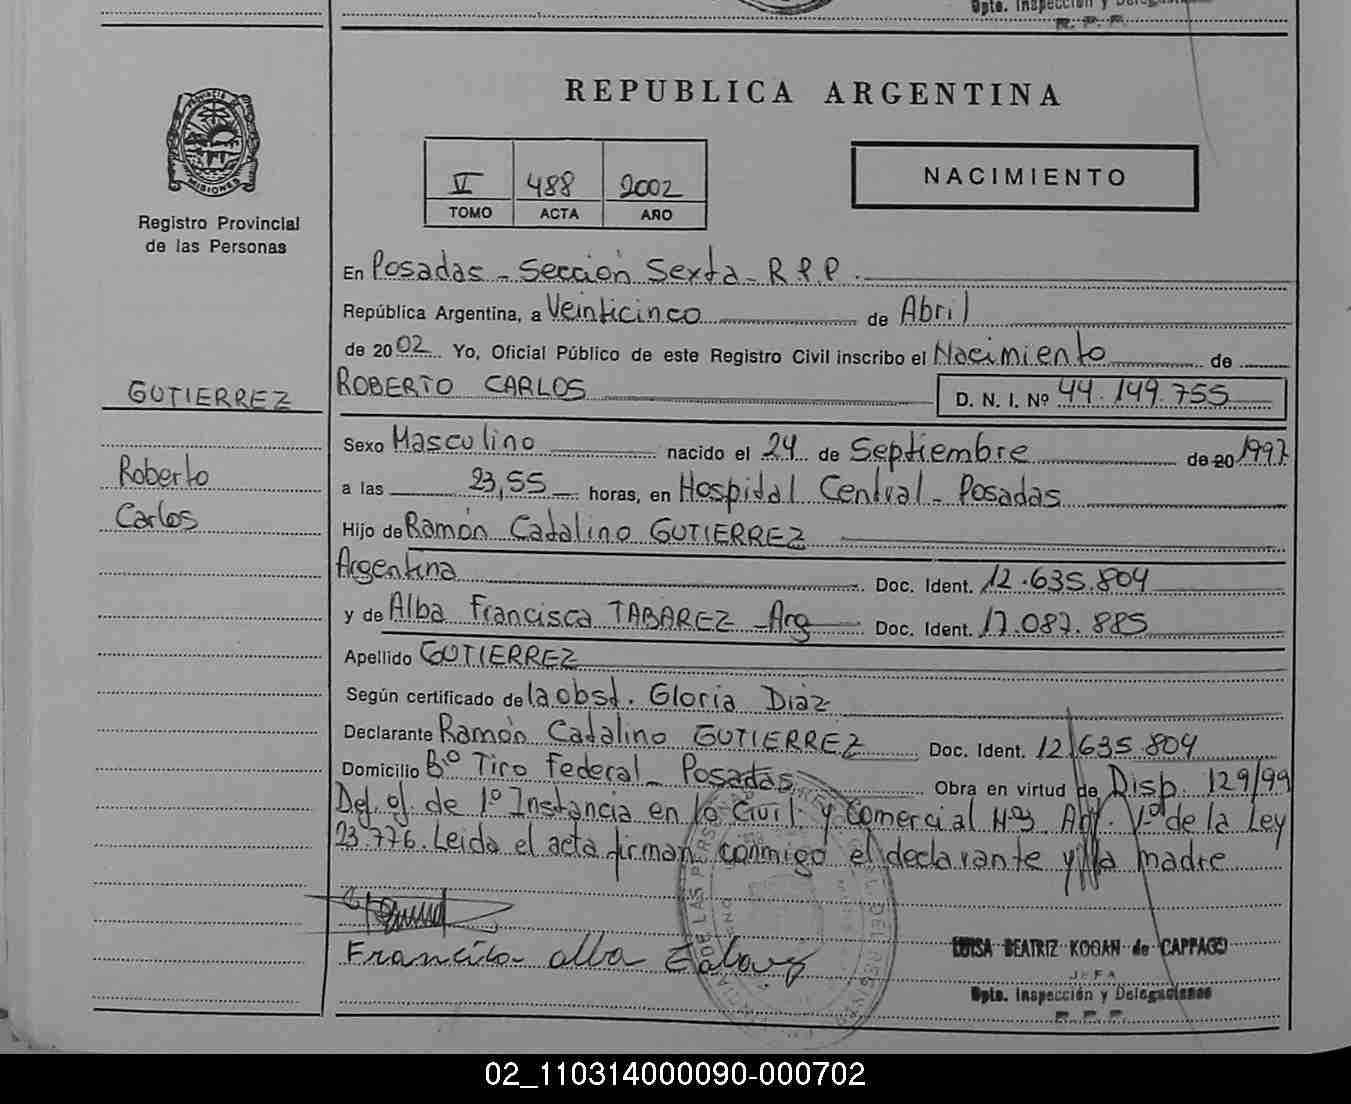 Dpto. Inspección y Delegaciones
R. P. P.
REPUBLICA ARGENTINA
PROVINCIA DE
MISIONES
Registro Provincial
de las Personas
VI 488 2002
TOMO ACTA AÑO
NACIMIENTO
En Posadas - Sección Sexta - R P P.
República Argentina, a Veinticinco de Abril
de 2002 Yo, Oficial Público de este Registro Civil inscribo el Nacimiento de
ROBERTO CARLOS D. N. I. Nº 44.149.755
GUTIERREZ
Roberto
Carlos
Sexo Masculino nacido el 24 de Septiembre de 20 1997
a las 23,55 horas, en Hospital Central - Posadas
Hijo de Ramón Catalino GUTIERREZ
Argentina Doc. Ident. 12.635.804
y de Alba Francisca TABAREZ - Arg Doc. Ident. 17.087.885
Apellido GUTIERREZ
Según certificado de la obst. Gloria Diaz
Declarante Ramón Catalino GUTIERREZ Doc. Ident. 12.635.804
Domicilio Bº Tiro Federal - Posadas Obra en virtud de Disp. 129/99
Def. of. de 1º Instancia en lo Civil y Comercial Nº3. Art. 1º de la Ley
23.776. Leida el acta firman conmigo el declarante y la madre
Francisca alba Tabarez
LUISA BEATRIZ KOGAN de CAPPAGO
JEFA
Dpto. Inspección y Delegaciones
R. P. P.
02_110314000090-000702